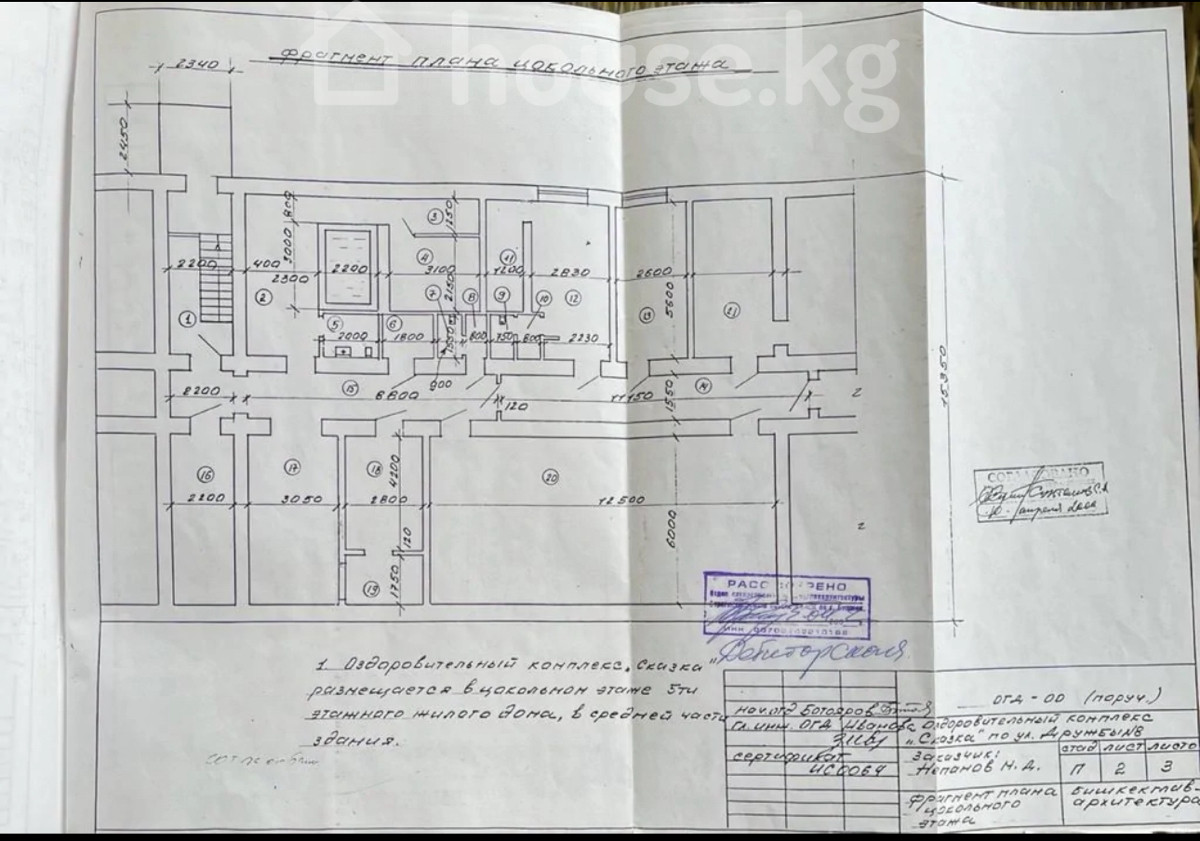 house.kg
Фрагмент плана цокольного этажа
2340
2450
800
3000
1250
3
4
11
2200
400
2200
3100
1200
2830
2600
2300
2150
5600
2
7
8
9
10
12
13
21
1
5
6
2000
1800
1550
600
750
800
2230
900
15
14
2200
6800
120
11150
1550
2
15350
16
17
18
4200
20
2200
3050
2800
12500
120
6000
2
19
1750
СОГЛАСОВАНО
РАССМОТРЕНО
Дебиторская
1 Оздоровительный комплекс „Сказка"
размещается в цокольном этаже 5ти
этажного жилого дома, в средней части
здания.
ОГД-00 (поруч.)
нач.отд Ботояров
гл.инж. ОГД Иванова
Оздоровительный комплекс
„Сказка" по ул. Дружбы №8
сертификат
ИС0064
Заказчик:
Непанов Н.Д.
стад лист листо
П 2 3
Фрагмент плана
цокольного
этажа
Бишкекглав-
архитектура